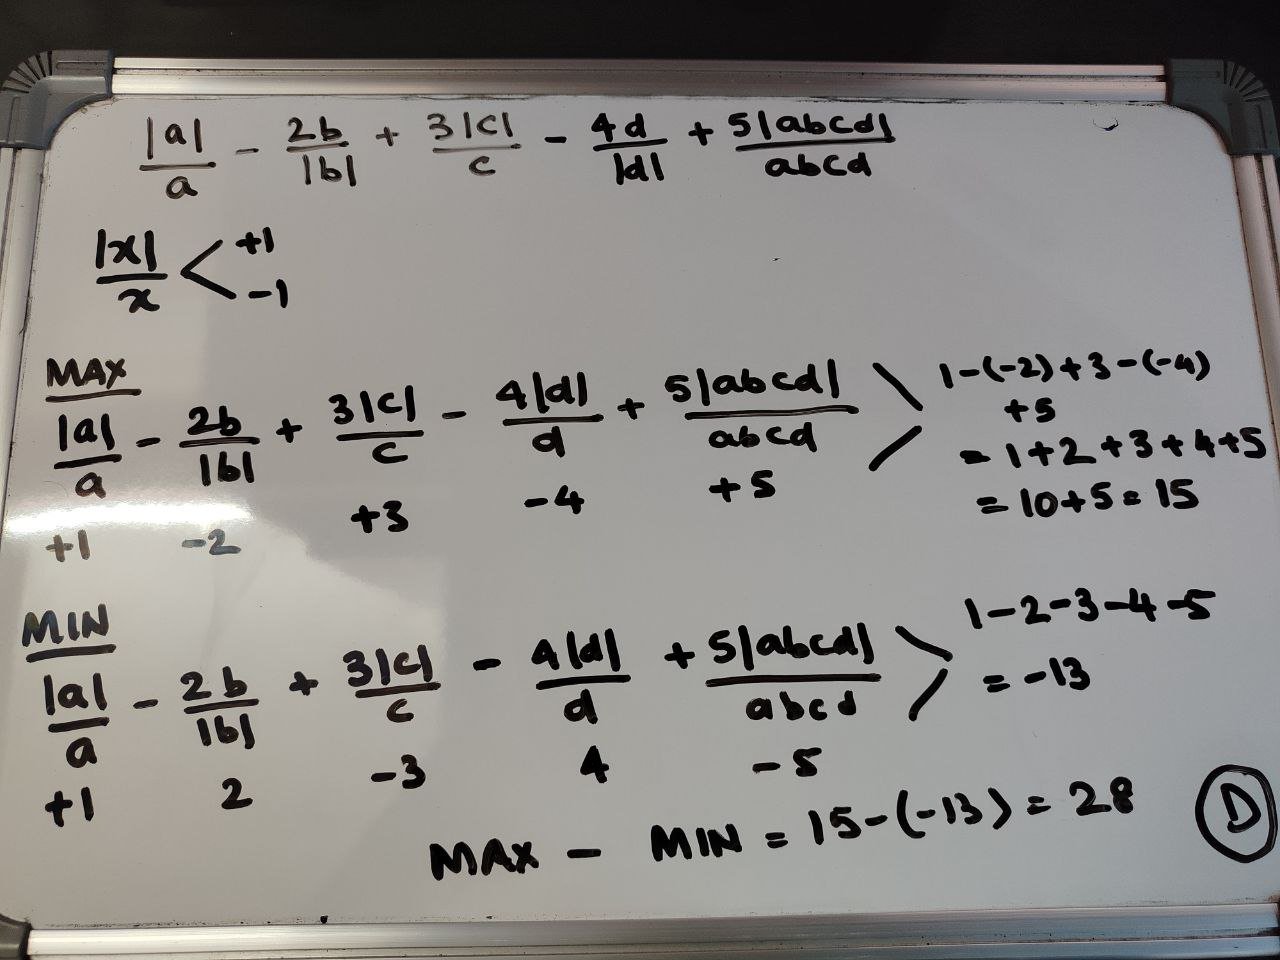 |a|/a - 2b/|b| + 3|c|/c - 4d/|d| + 5|abcd|/abcd
|x|/x < +1
-1
MAX
|a|/a - 2b/|b| + 3|c|/c - 4|d|/d + 5|abcd|/abcd
+1 -2 +3 -4 +5
1-(-2)+3-(-4)
+5
= 1+2+3+4+5
= 10+5 = 15
MIN
|a|/a - 2b/|b| + 3|c|/c - 4|d|/d + 5|abcd|/abcd
+1 2 -3 4 -5
1-2-3-4-5
= -13
MAX - MIN = 15-(-13) = 28
D